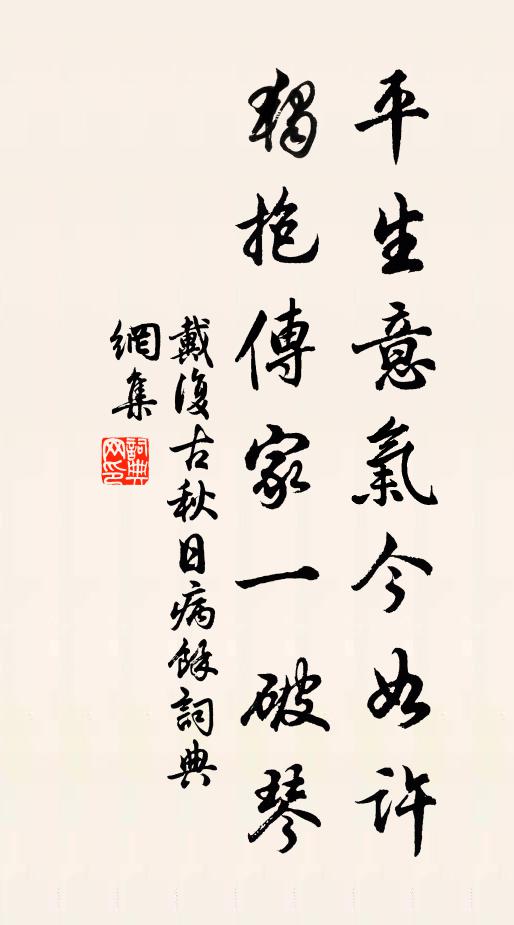 平生意氣今如許
獨抱傳家一破琴
戴復古秋日病餘詞典
網集
詞典網印